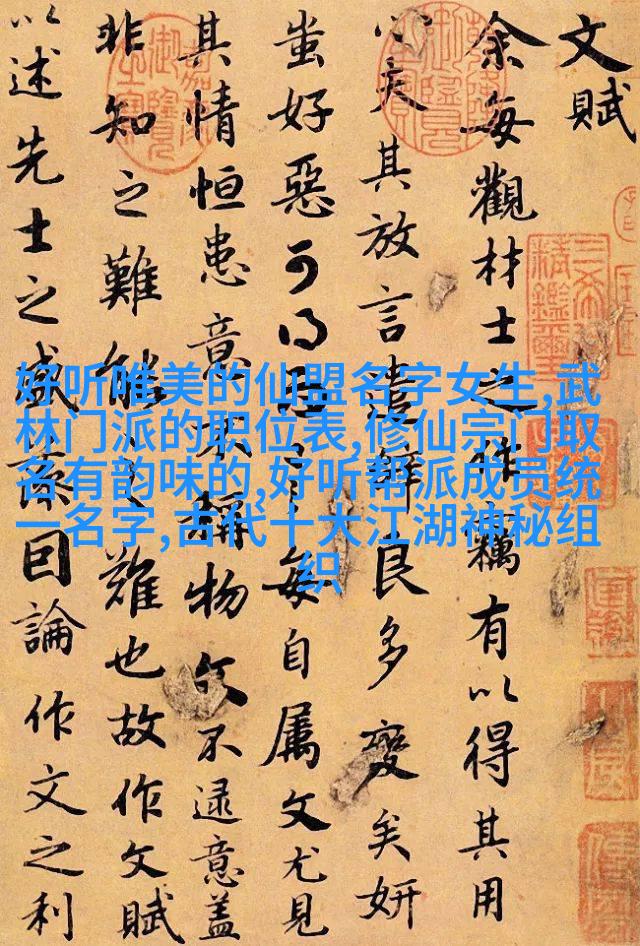 文賦
余每觀材士之作竊有以得其用
心夫其放言遣辭良多變矣妍
蚩好惡可得而言每自屬文尤見
其情恒患意不稱物文不逮意盖
非知之難能之難也故作文賦
以述先士之盛藻因論作文之利
好听唯美的仙盟名字女生,武
林门派的职位表,修仙宗门取
名有韵味的,好听帮派成员统
一名字,古代十大江湖神秘组
织